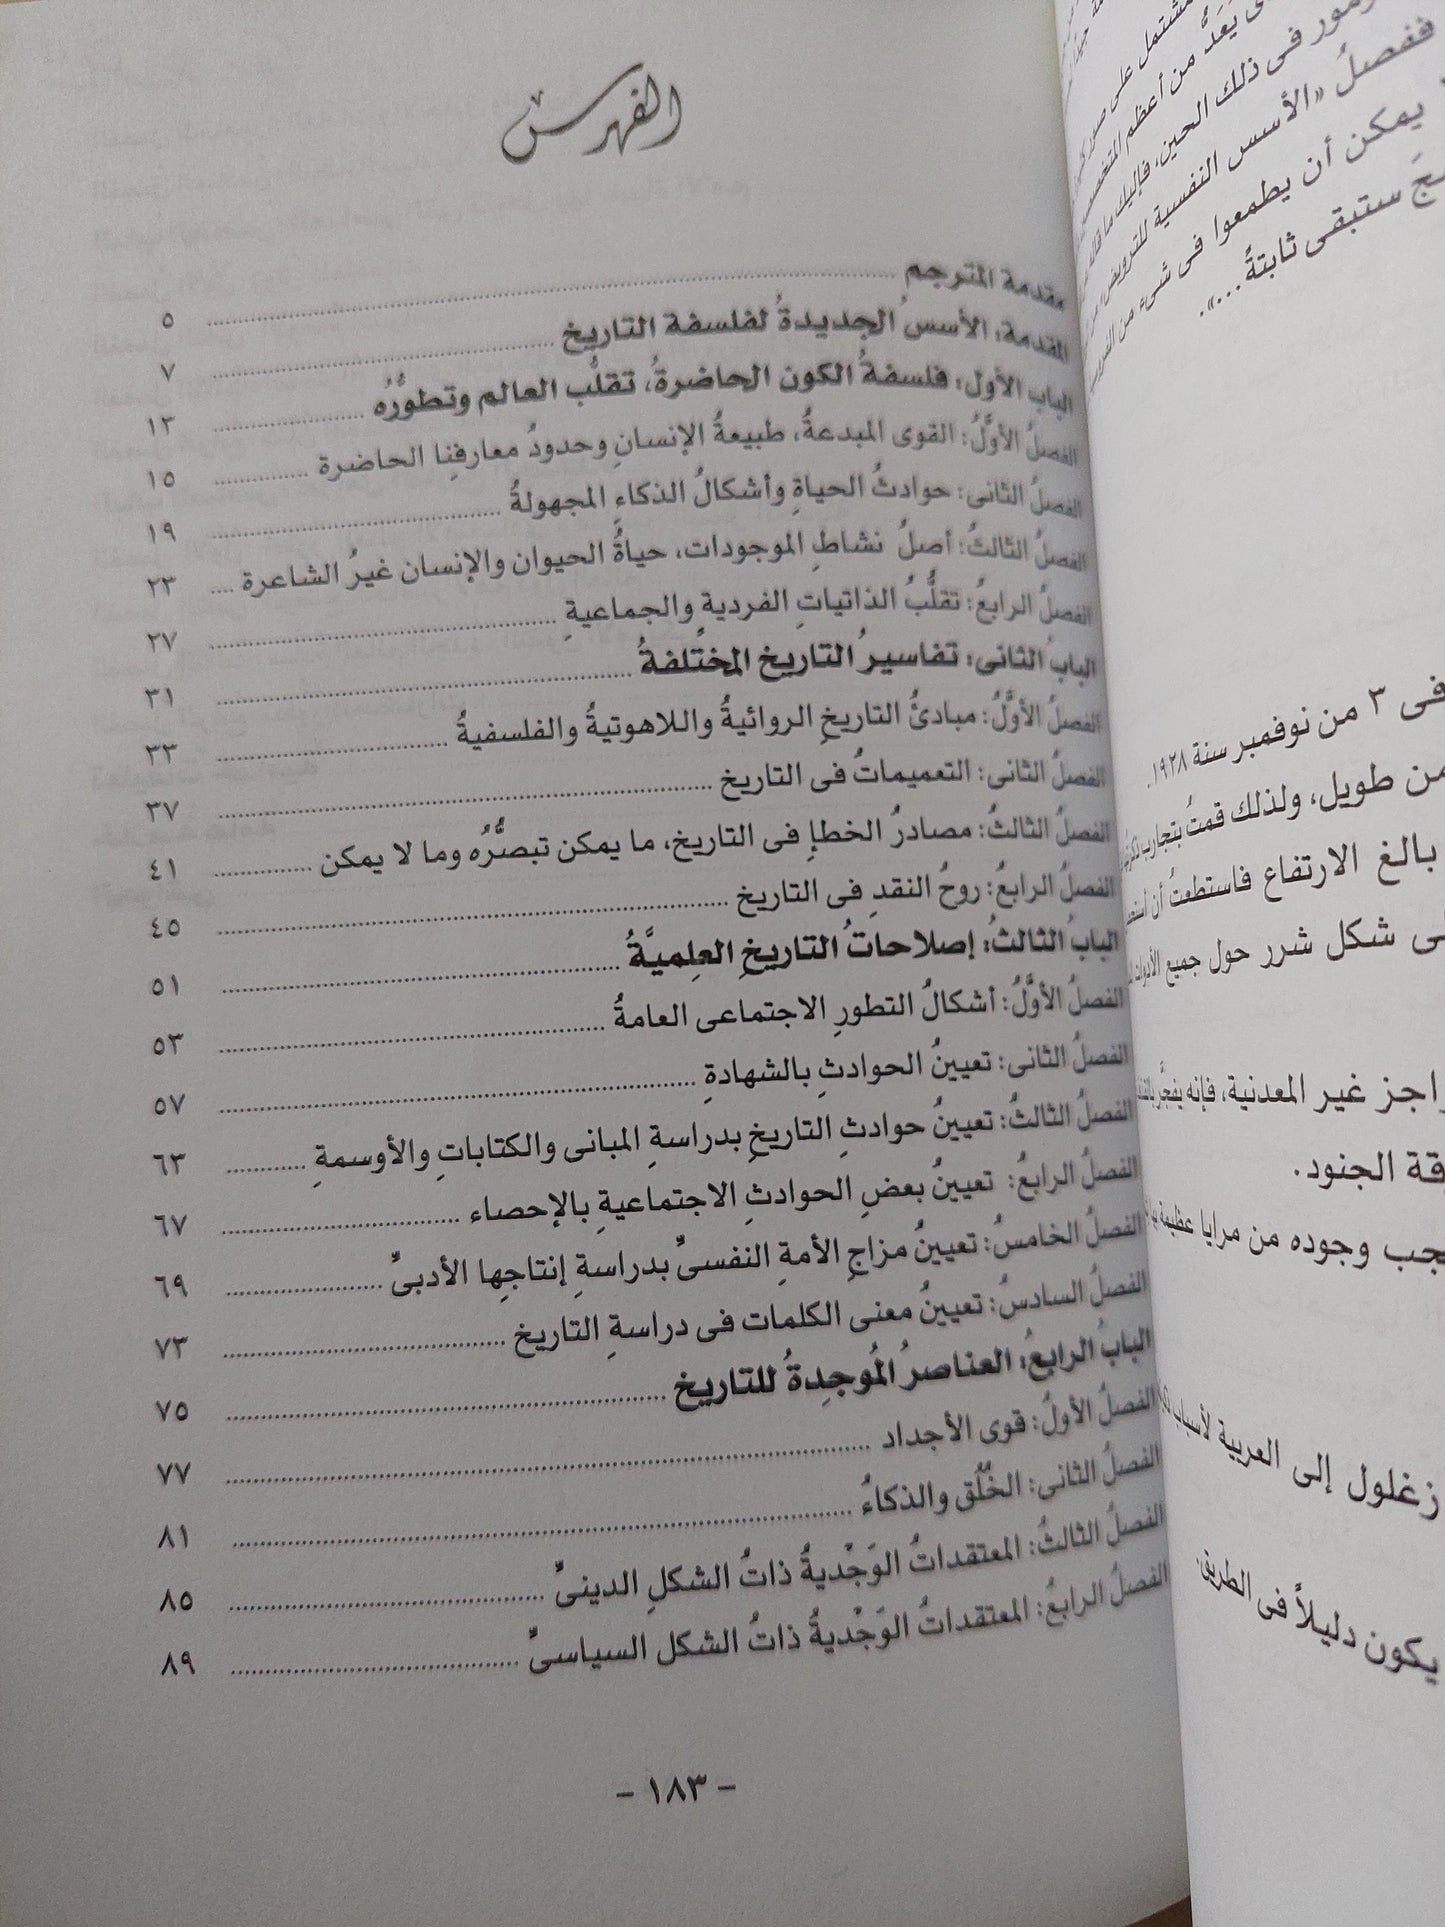 الفهرس
مقدمة المترجم ........ ٥
المقدمة: الأسسُ الجديدةُ لفلسفة التاريخ ........ ٧
الباب الأول: فلسفةُ الكون الحاضرةُ، تقلُّب العالم وتطوُّرُه ........ ١٣
الفصلُ الأوَّلُ: القوى المبدعةُ، طبيعةُ الإنسانِ وحدودُ معارفنِا الحاضرة ........ ١٥
الفصلُ الثانى: حوادثُ الحياةِ وأشكالُ الذكاءِ المجهولةُ ........ ١٩
الفصلُ الثالثُ: أصلُ نشاطِ الموجودات، حياةُ الحيوان والإنسان غيرُ الشاعرة .... ٢٣
الفصلُ الرابعُ: تقلُّبُ الذاتياتِ الفردية والجماعيةِ ........ ٢٧
البابُ الثانى: تفاسيرُ التاريخ المختَلفةُ ........ ٣١
الفصلُ الأوَّلُ: مبادئُ التاريخِ الروائيةُ واللاهوتيةُ والفلسفيةُ ........ ٣٣
الفصلُ الثانى: التعميماتُ فى التاريخ ........ ٣٧
الفصلُ الثالثُ: مصادرُ الخطإِ فى التاريخ، ما يمكن تبصُّرُه وما لا يمكن ........ ٤١
الفصلُ الرابعُ: روحُ النقدِ فى التاريخ ........ ٤٥
البابُ الثالثُ: إصلاحاتُ التاريخِ العِلميَّةُ ........ ٥١
الفصلُ الأوَّلُ: أشكالُ التطورِ الاجتماعى العامةُ ........ ٥٣
الفصلُ الثانى: تعيينُ الحوادثِ بالشهادةِ ........ ٥٧
الفصلُ الثالثُ: تعيينُ حوادثِ التاريخِ بدراسةِ المبانى والكتاباتِ والأوسمةِ ........ ٦٣
الفصلُ الرابعُ: تعيينُ بعضِ الحوادثِ الاجتماعيةِ بالإحصاء ........ ٦٧
الفصلُ الخامسُ: تعيينُ مزاجِ الأمةِ النفسىِّ بدراسةِ إنتاجِها الأدبىِّ ........ ٦٩
الفصلُ السادسُ: تعيينُ معنى الكلمات فى دراسةِ التاريخ ........ ٧٣
البابُ الرابعُ: العناصرُ المُوجِدةُ للتاريخ ........ ٧٥
الفصلُ الأولُ: قوى الأجداد ........ ٧٧
الفصلُ الثانى: الخُلُق والذكاءُ ........ ٨١
الفصلُ الثالثُ: المعتقداتُ الوَجْديةُ ذاتُ الشكلِ الدينىِّ ........ ٨٥
الفصلُ الرابعُ: المعتقداتُ الوَجْديةُ ذاتُ الشكل السياسىِّ ........ ٨٩
- ١٨٣ -
مشتمل على صور
يُعَدُّ من أعظم
فى ذلك الحين، فإليك ما قاله
ففصلُ «الأسس النفسية للترويض
يمكن أن يطمعوا فى شىء من
ستبقى ثابتةً...».
فى ٣ من نوفمبر سنة ١٩٢٨.
من طويل، ولذلك قمتُ بتجارب
بالغ الارتفاع فاستطعتُ أن
شكل شرر حول جميع
غير المعدنية، فإنه يفجِّر
الجنود.
وجوده من مرايا عظيمة
زغلول إلى العربية لأسباب
يكون دليلاً فى الطريق.